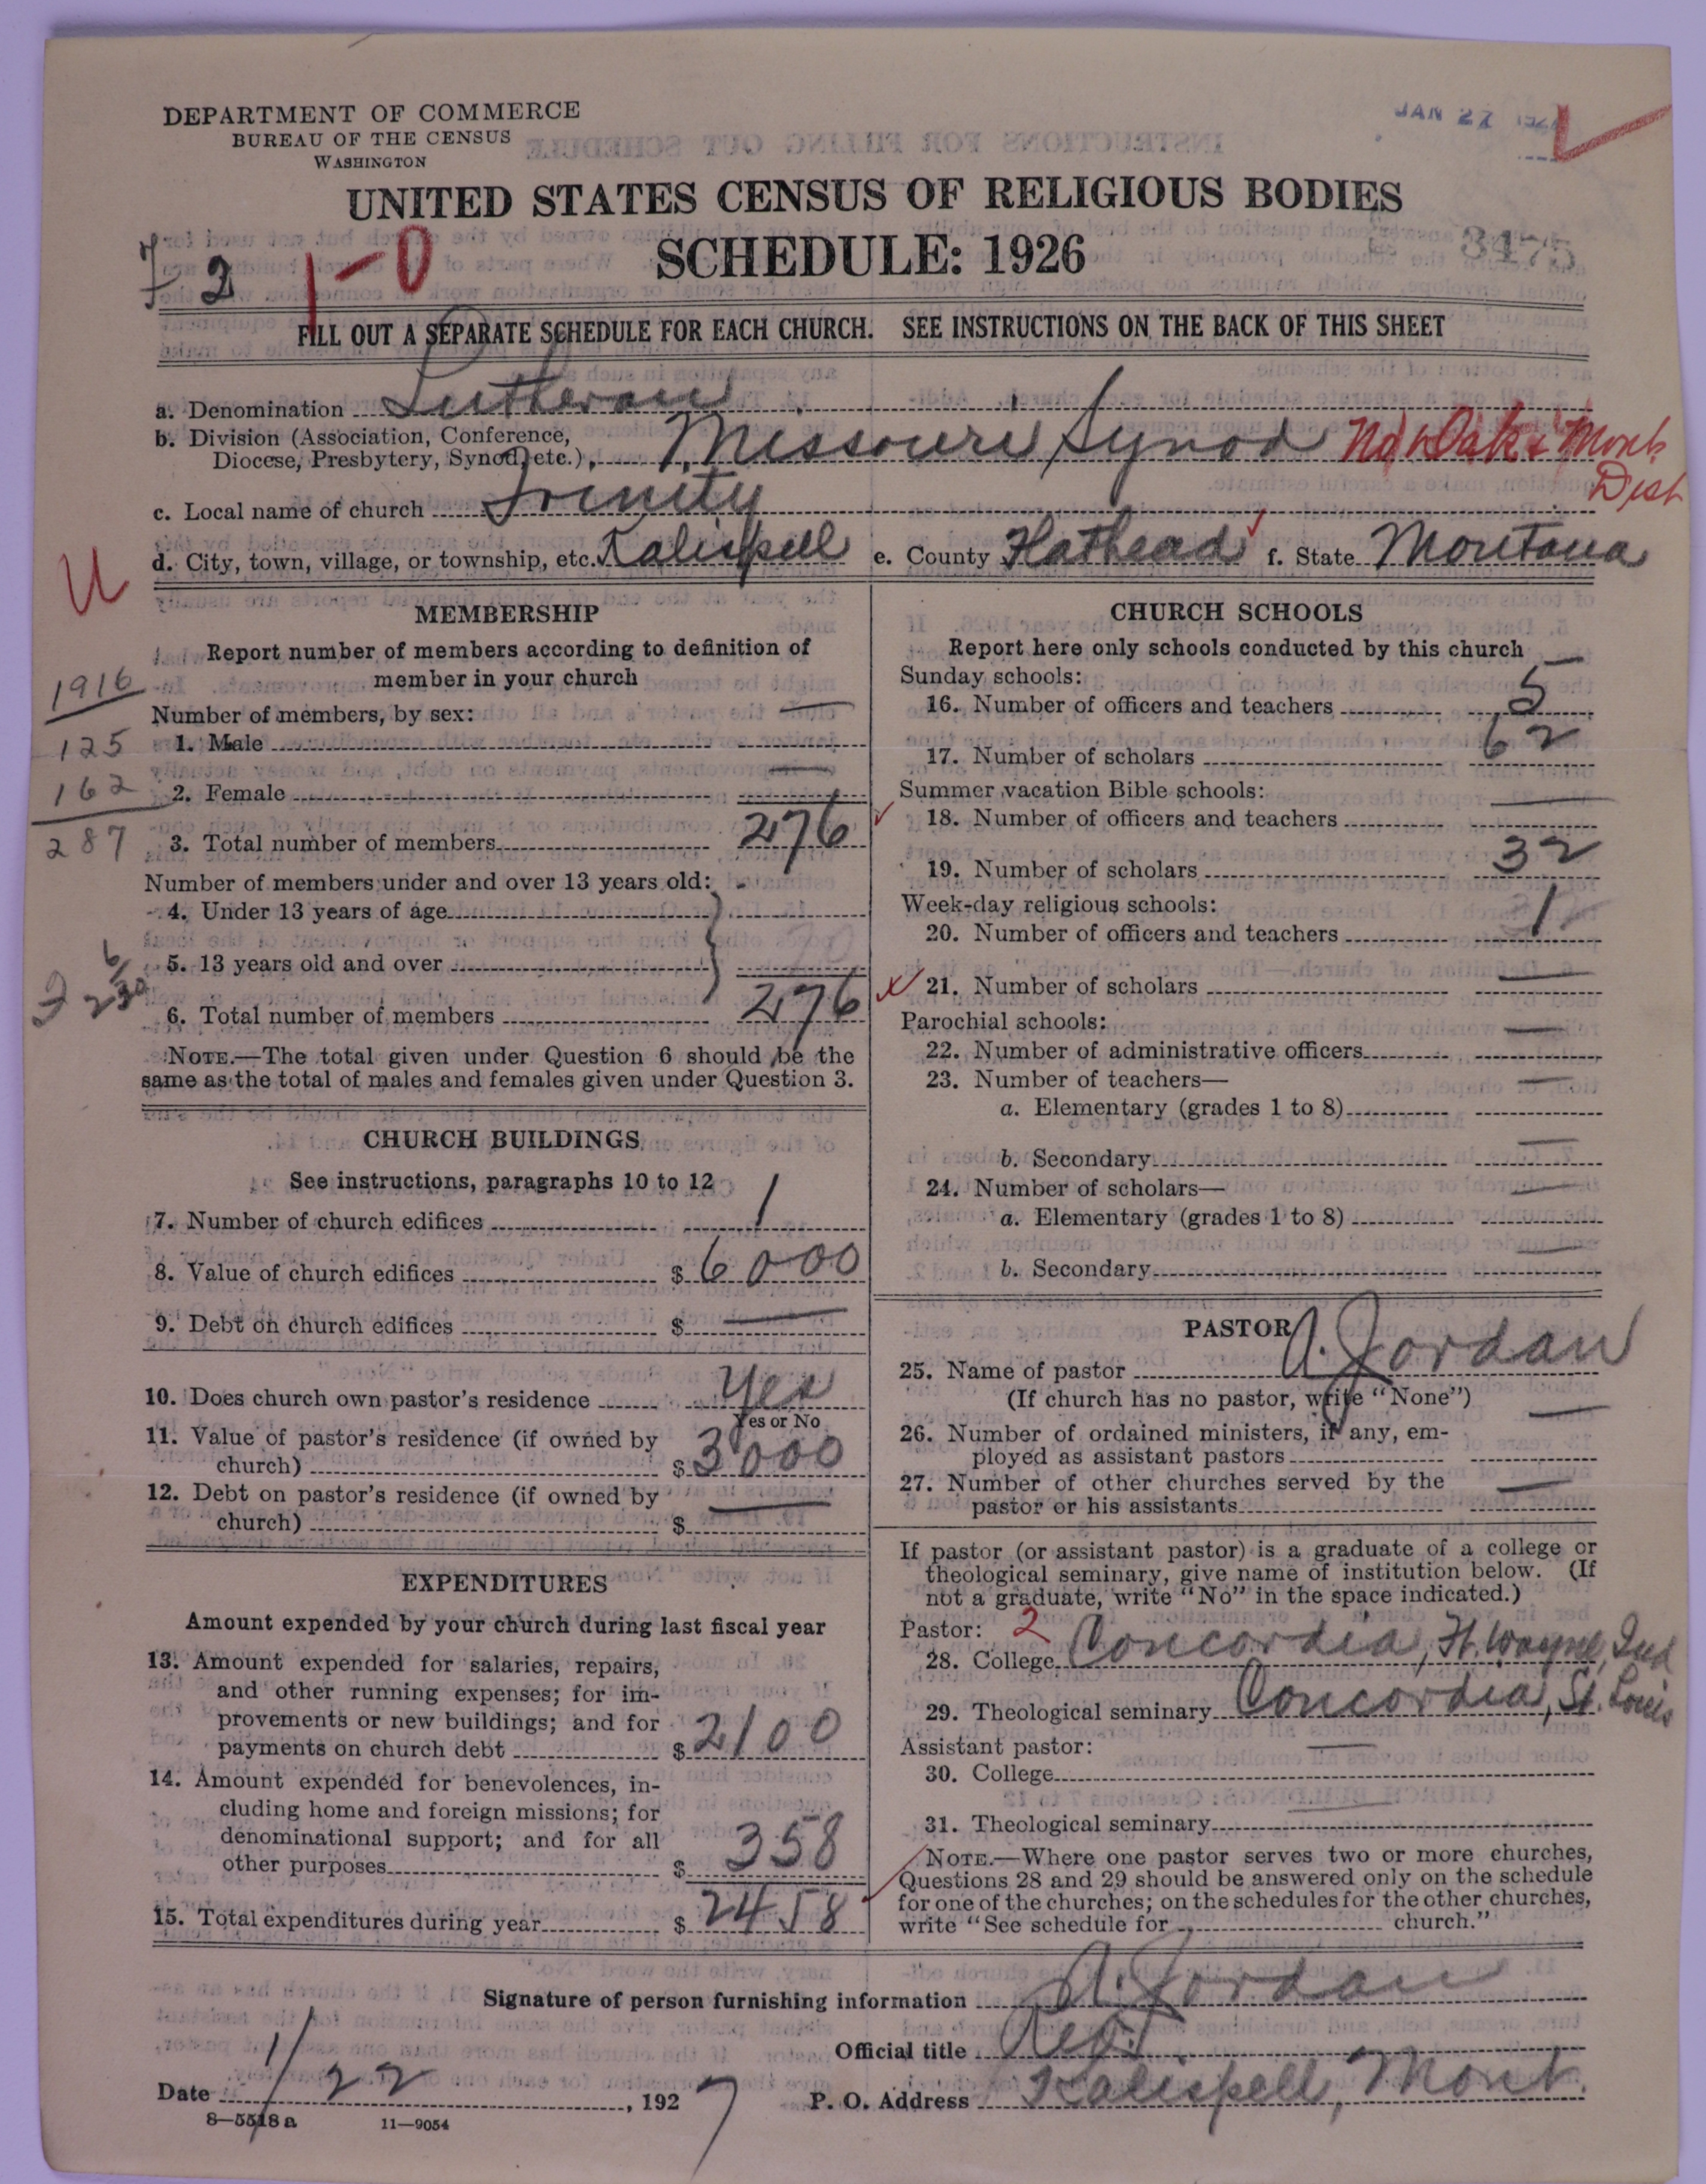 DEPARTMENT OF COMMERCE
BUREAU OF THE CENSUS
WASHINGTON
JAN 27
UNITED STATES CENSUS OF RELIGIOUS BODIES
SCHEDULE: 1926
3475
7-2
1-0
FILL OUT A SEPARATE SCHEDULE FOR EACH CHURCH. SEE INSTRUCTIONS ON THE BACK OF THIS SHEET
a. Denomination Lutheran
b. Division (Association, Conference,
Diocese, Presbytery, Synod, etc.), Missouri Synod No Dak & Mont
Dist
c. Local name of church Trinity
d. City, town, village, or township, etc. Kalispell e. County Flathead f. State Montana
U
MEMBERSHIP
Report number of members according to definition of
member in your church
1916
Number of members, by sex: —
125 1. Male
162 2. Female —
287 3. Total number of members 276
Number of members under and over 13 years old: -
4. Under 13 years of age
5. 13 years old and over
6. Total number of members 276
NOTE.—The total given under Question 6 should be the
same as the total of males and females given under Question 3.
CHURCH BUILDINGS
See instructions, paragraphs 10 to 12
7. Number of church edifices 1
8. Value of church edifices $ 6000
9. Debt on church edifices $ —
10. Does church own pastor's residence Yes
Yes or No
11. Value of pastor's residence (if owned by
church) $ 3000
12. Debt on pastor's residence (if owned by
church) $ —
EXPENDITURES
Amount expended by your church during last fiscal year
13. Amount expended for salaries, repairs,
and other running expenses; for im-
provements or new buildings; and for
payments on church debt $ 2100
14. Amount expended for benevolences, in-
cluding home and foreign missions; for
denominational support; and for all
other purposes $ 358
15. Total expenditures during year $ 2458
CHURCH SCHOOLS
Report here only schools conducted by this church
Sunday schools: —
16. Number of officers and teachers 5
17. Number of scholars 62
Summer vacation Bible schools:
18. Number of officers and teachers —
19. Number of scholars 32
Week-day religious schools:
20. Number of officers and teachers 1
21. Number of scholars —
Parochial schools:
22. Number of administrative officers —
23. Number of teachers—
a. Elementary (grades 1 to 8) —
b. Secondary —
24. Number of scholars—
a. Elementary (grades 1 to 8) —
b. Secondary —
PASTOR
25. Name of pastor A. Jordan
(If church has no pastor, write "None")
26. Number of ordained ministers, if any, em-
ployed as assistant pastors —
27. Number of other churches served by the
pastor or his assistants —
If pastor (or assistant pastor) is a graduate of a college or
theological seminary, give name of institution below. (If
not a graduate, write "No" in the space indicated.)
Pastor: 2
28. College Concordia, Ft. Wayne, Ind
29. Theological seminary Concordia, St. Louis
Assistant pastor:
30. College —
31. Theological seminary —
NOTE.—Where one pastor serves two or more churches,
Questions 28 and 29 should be answered only on the schedule
for one of the churches; on the schedules for the other churches,
write "See schedule for church."
Signature of person furnishing information A. Jordan
Official title
Date 1/22, 1927 P. O. Address Kalispell, Mont.
8—5518 a 11—9054